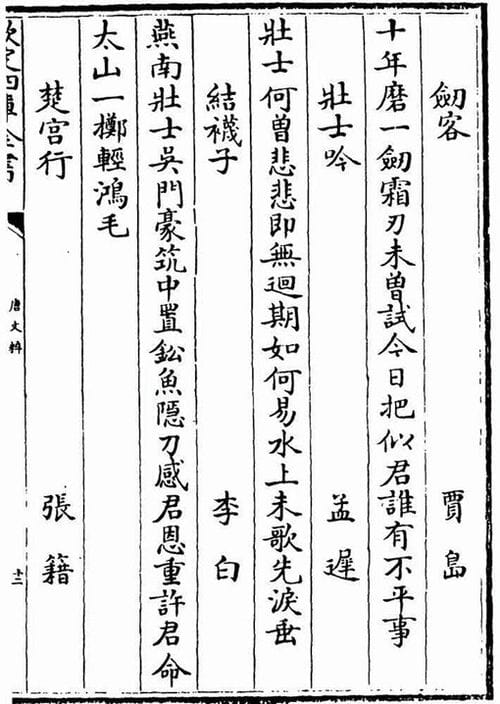 劒客 賈島
十年磨一劒霜刃未曽試今日把似君誰有不平事
壯士吟 孟遲
壯士何曽悲悲即無迴期如何易水上未歌先淚垂
結襪子 李白
燕南壯士吳門豪筑中置鈆魚隱刀感君恩重許君命
太山一擲輕鴻毛
楚宫行 張籍
欽定四庫全書
唐文粹
十二